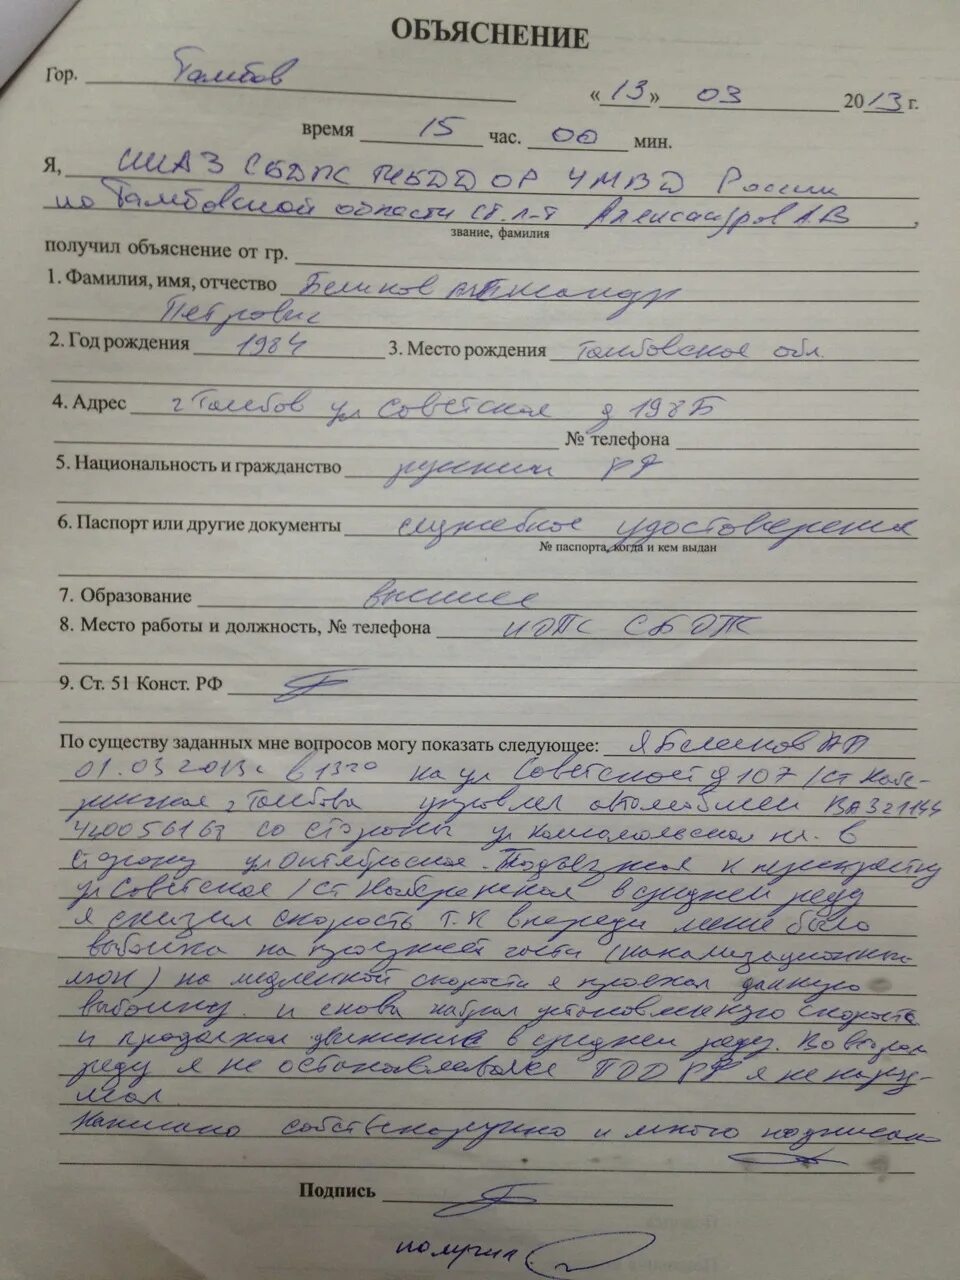 ОБЪЯСНЕНИЕ
Гор. Тамбов
«13» 03 2013 г.
время 15 час. 00 мин.
Я, СБДПС ГИБДД УМВД России
по Тамбовской области ст. л-т Александров А.В
звание, фамилия
получил объяснение от гр.
1. Фамилия, имя, отчество Беликов
Петрович
2. Год рождения 1984 3. Место рождения Тамбовское обл.
4. Адрес г Тамбов ул Советская д 198Б
№ телефона
5. Национальность и гражданство русский РФ
6. Паспорт или другие документы служебное удостоверение
№ паспорта, когда и кем выдан
7. Образование высшее
8. Место работы и должность, № телефона ИДПС
9. Ст. 51 Конст. РФ
По существу заданных мне вопросов могу показать следующее: Я Беликов АП
01.03.2013г в 1320 на ул Советской д 107 / ст Набе-
режная г Тамбова управлял автомобилем ВАЗ21144
со стороны ул Комсомольская пл. в
сторону ул Октябрьская. Подъезжая к перекрестку
ул Советская / ст Набережная в среднем ряду
я снизил скорость т.к впереди меня было
выбоина на проезжей части (канализационный
люк) на медленной скорости я проехал данную
выбоину и снова набрал установленную скорость
и продолжил движение в среднем ряду. Во втором
ряду я не останавливался ПДД РФ я не нару-
шал.
Написано собственноручно и мною подписано
Подпись
получил